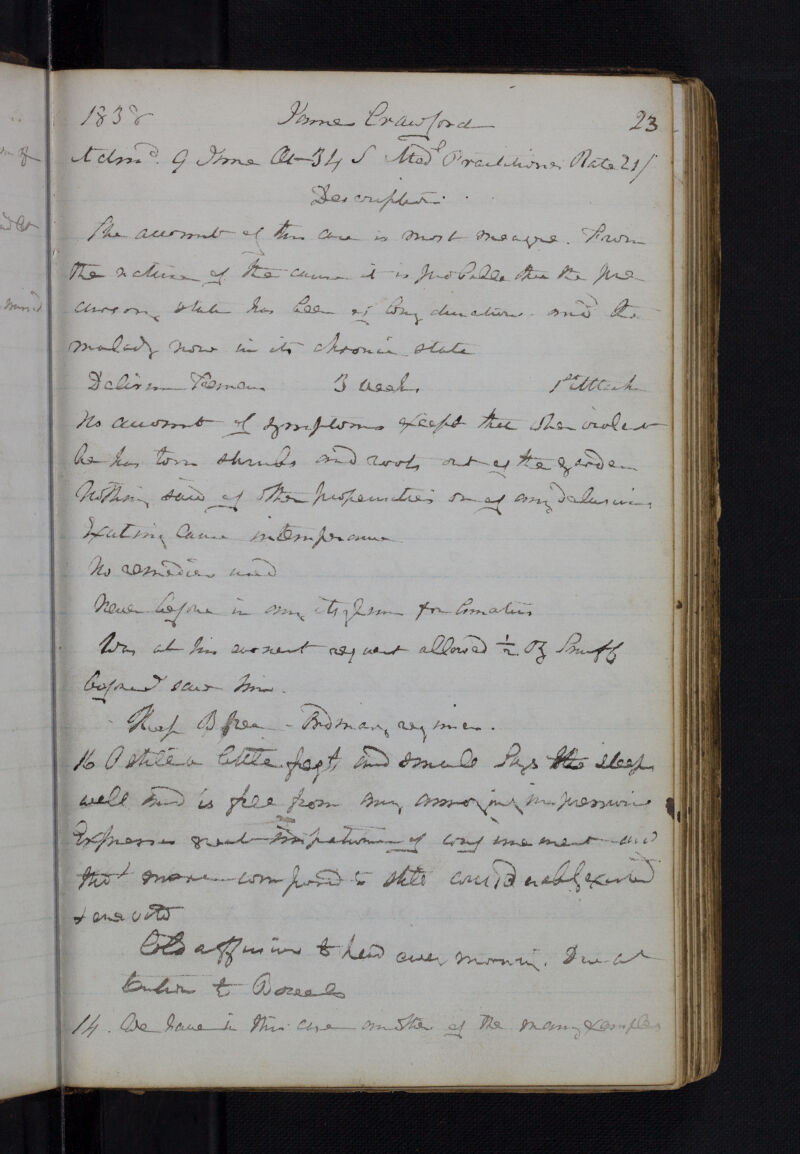 1838 James Crawford 23
Admd. 9 June Æt 34 S Medl Practitioner Rate 21/
Description
The account of this case is most meagre. From
the nature of the cause it is probable that the pre
cursory state has been of long duration and the
malady now in its chronic state
Delirium Tremens 3 weeks 1st Attack
No account of symptoms except that when violent
he has torn shrubs and roots out of the garden
Nothing said of other propensities or of any delusions
Exciting cause intemperance
No remedies used
Never before in any asylum for lunatics
Was at his earnest request allowed ½ oz Snuff
before I saw him.
Keep B free - Ordinary regimen.
10 P still a little freqt, and small Says he sleeps
well and is free from any annoying impressions
Expresses great impatience of confinement and
tho' more composed is still considerably excited
Cold affusion to head every morning. Due at
tention to Bowels
14. We have in this case another of the many examples